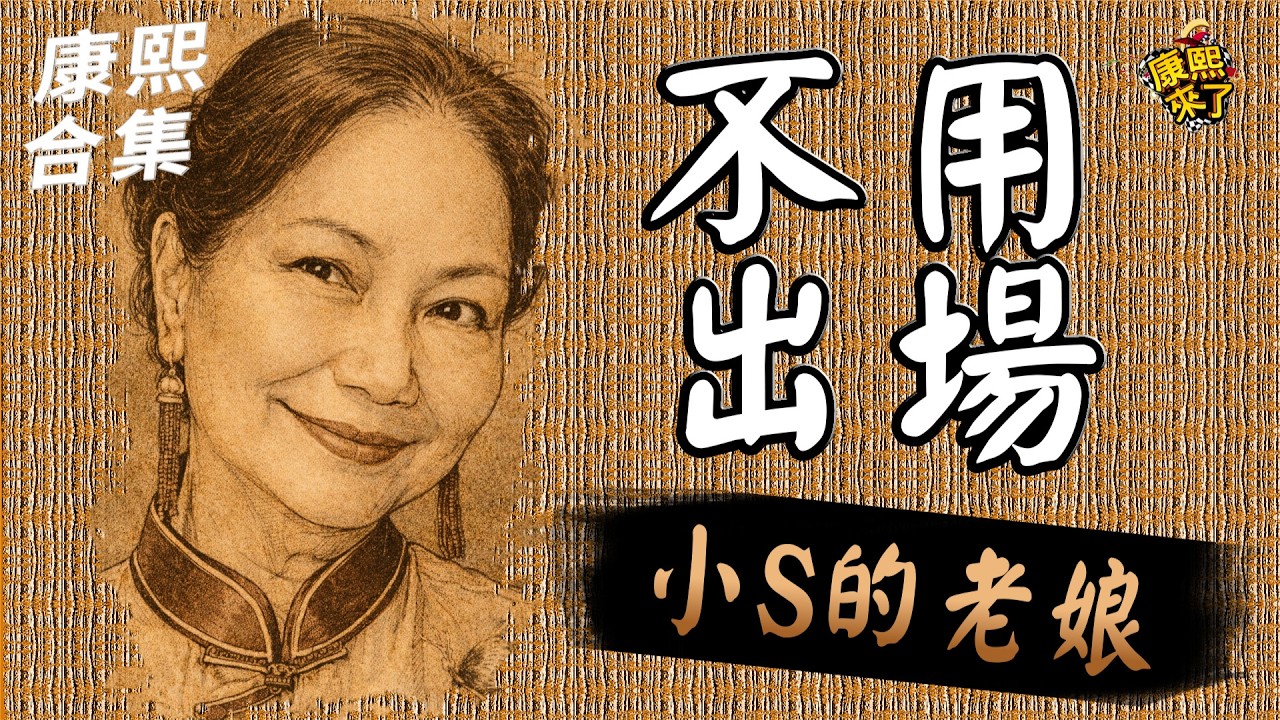 康熙
合集
不用
出場
小S的老娘
康熙
來了